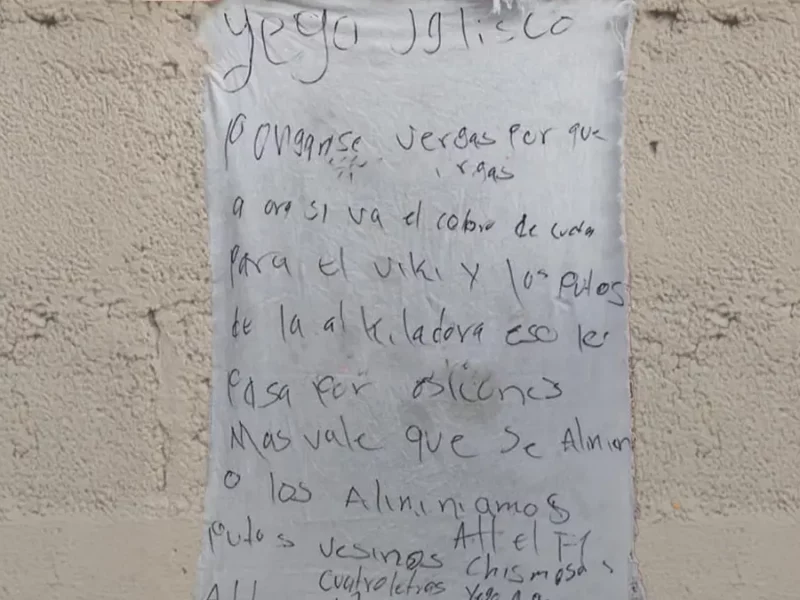 yego Jalisco
Ponganse vergas por que
rgas
a ora si va el cobro de cuota
para el viki y los putos
de la alkiladora eso les
Pasa por osicones
Mas vale que se Alinien
o los Aliniamos
Putos vesinos Att el F1
cuatroletras chismosas
Att